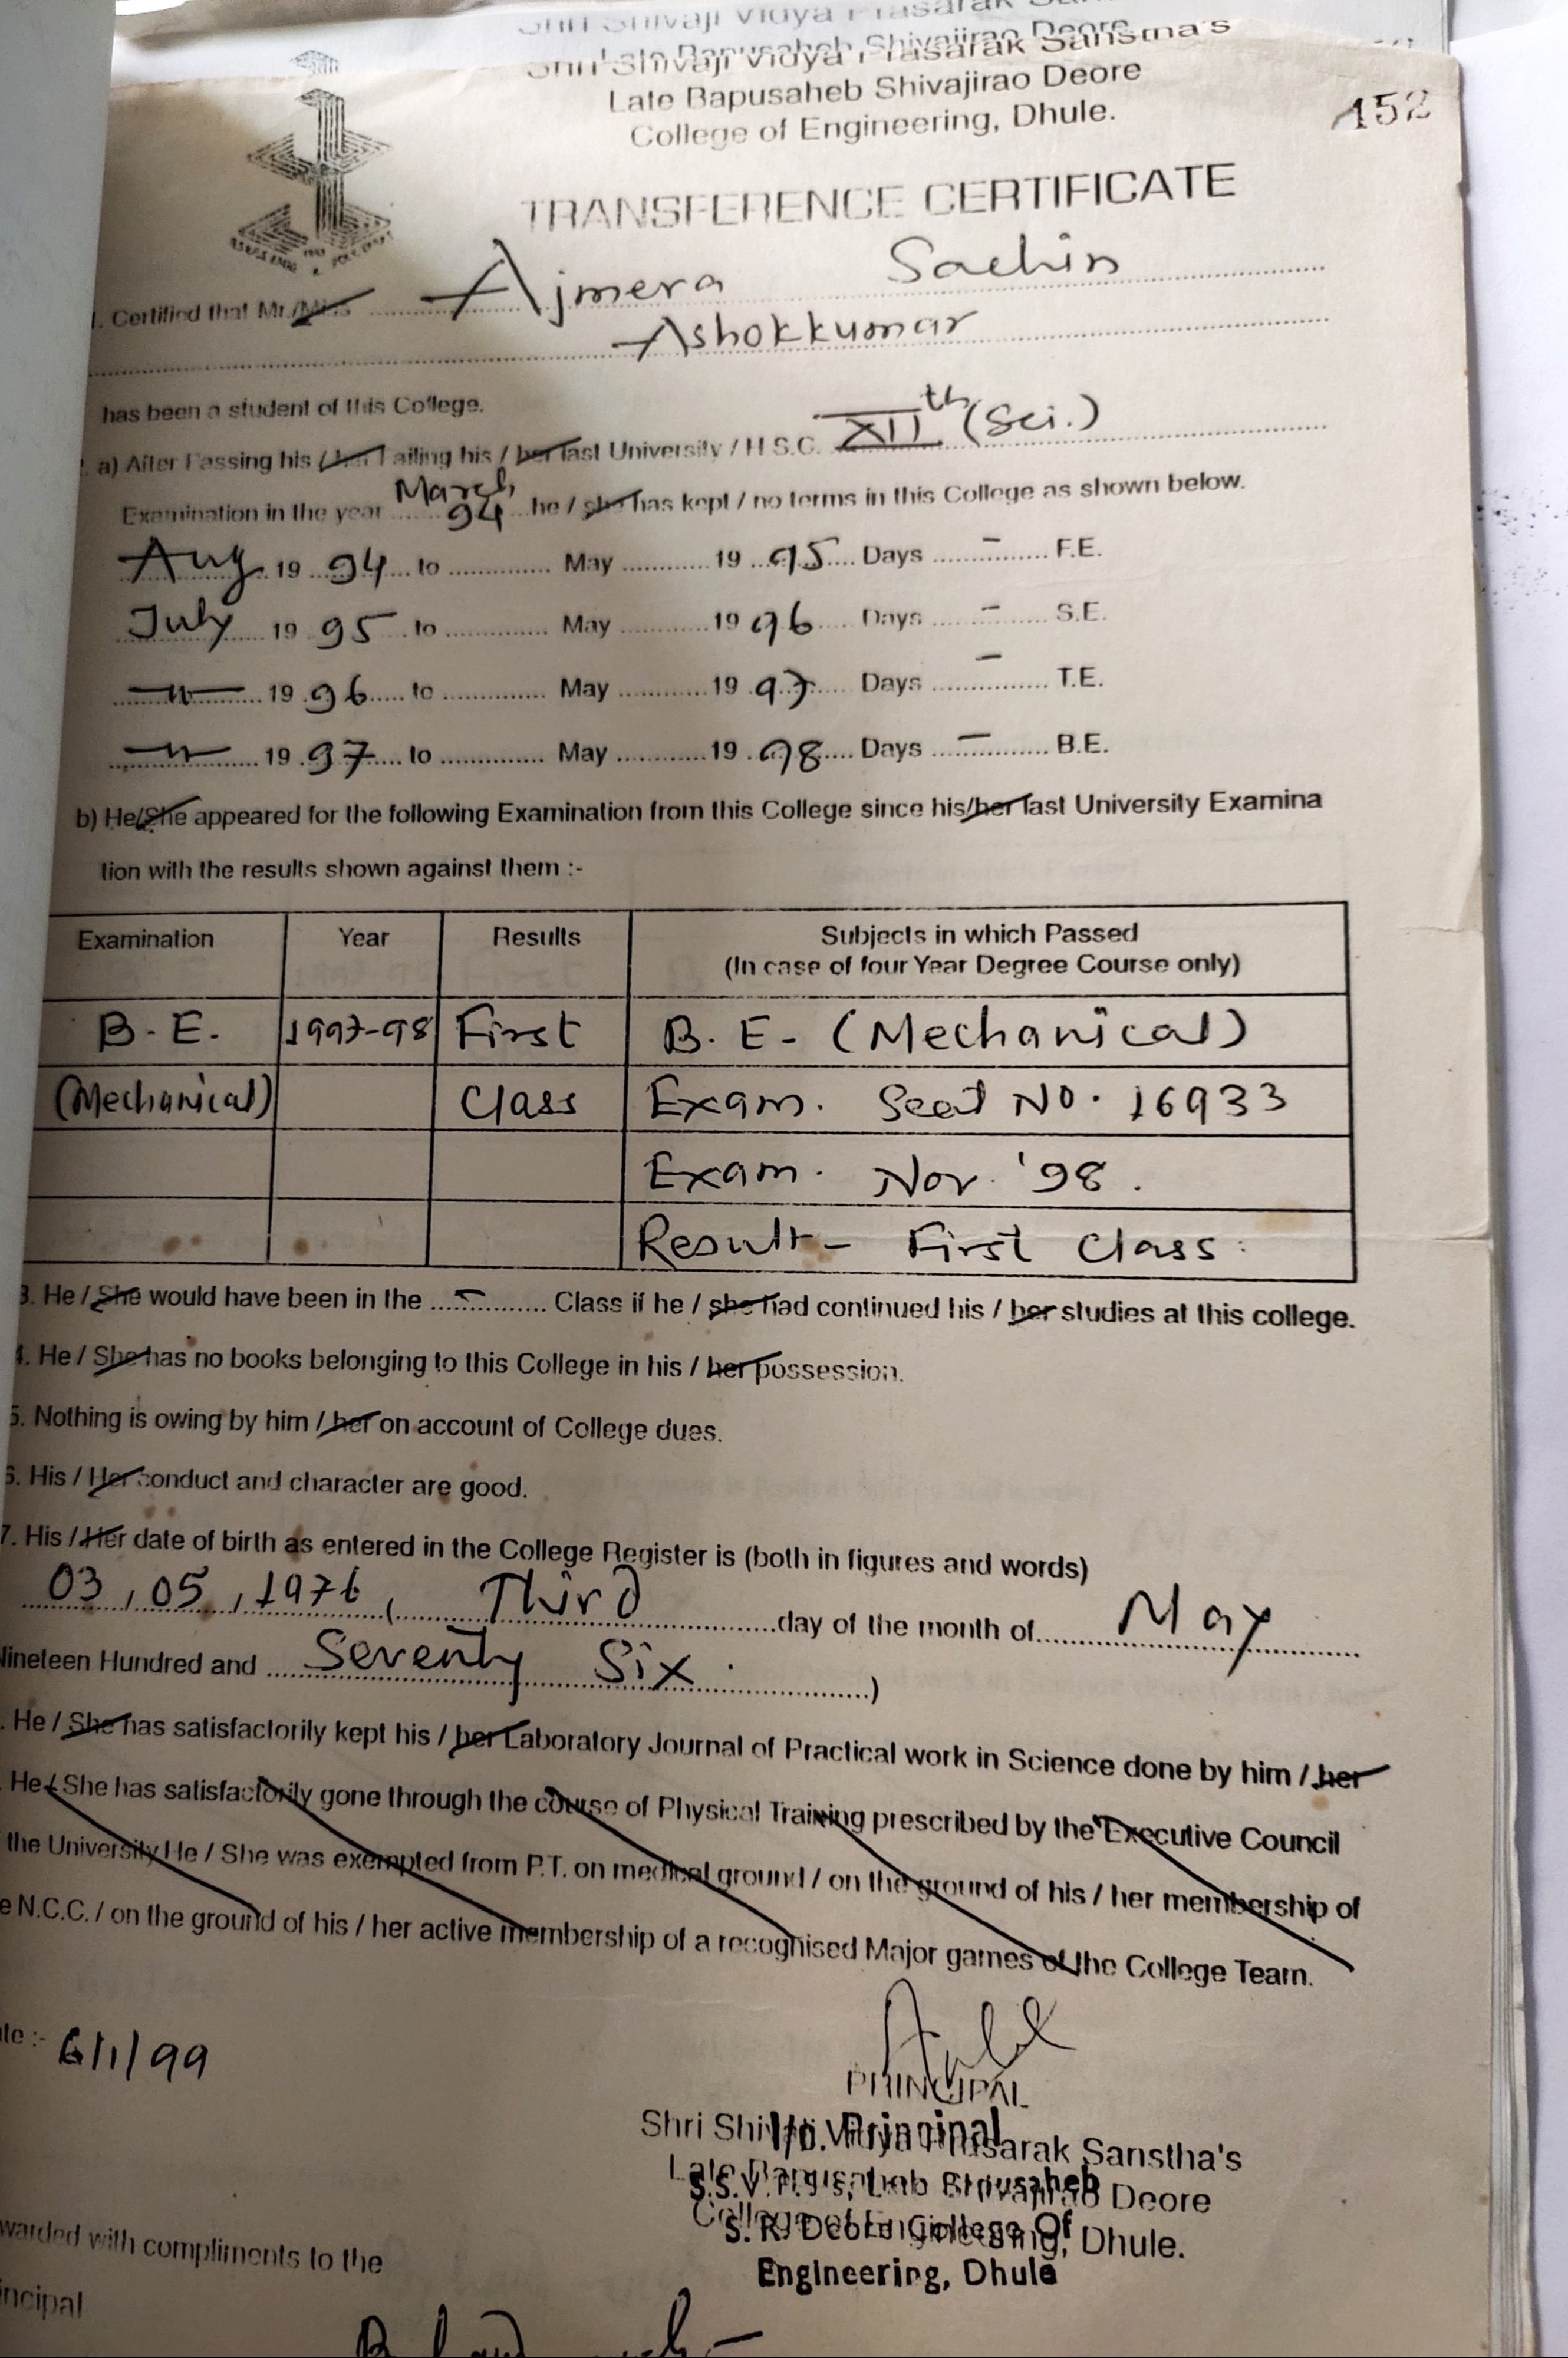 Shri Shivaji Vidya Prasarak
Late Bapusaheb Shivajirao Deore
Shri Shivaji Vidya Prasarak Sanstha's
Late Bapusaheb Shivajirao Deore
College of Engineering, Dhule.
152
TRANSFERENCE CERTIFICATE
1. Certified that Mr./Miss Ajmera Sachin
Ashokkumar
has been a student of this College.
a) After Passing his / her Failing his / her last University / H.S.C. XIIth (Sci.)
Examination in the year March 94 he / she has kept / no terms in this College as shown below.
Aug 19 94 to May 19 95 Days - F.E.
July 19 95 to May 19 96 Days - S.E.
—〃— 19 96 to May 19 97 Days - T.E.
—〃— 19 97 to May 19 98 Days - B.E.
b) He/She appeared for the following Examination from this College since his/her last University Examina
tion with the results shown against them :-
Examination Year Results Subjects in which Passed
(In case of four Year Degree Course only)
B.E. 1997-98 First B.E. (Mechanical)
(Mechanical) Class Exam. Seat No. 16933
Exam. Nov. '98.
Result - First Class.
3. He / She would have been in the - Class if he / she had continued his / her studies at this college.
4. He / She has no books belonging to this College in his / her possession.
5. Nothing is owing by him / her on account of College dues.
6. His / Her conduct and character are good.
7. His / Her date of birth as entered in the College Register is (both in figures and words)
03, 05, 1976 ( Third day of the month of May
Nineteen Hundred and Seventy Six. )
. He / She has satisfactorily kept his / her Laboratory Journal of Practical work in Science done by him / her
. He / She has satisfactorily gone through the course of Physical Training prescribed by the Executive Council
the University He / She was exempted from P.T. on medical ground / on the ground of his / her membership of
e N.C.C. / on the ground of his / her active membership of a recognised Major games of the College Team.
ate :- 6/1/99
PRINCIPAL
I/c. Principal
Shri Shivaji Vidya Prasarak Sanstha's
Late Bapusaheb Shivajirao Deore
College of Engineering, Dhule.
S. R. Deore College Of
Engineering, Dhule
warded with compliments to the
incipal